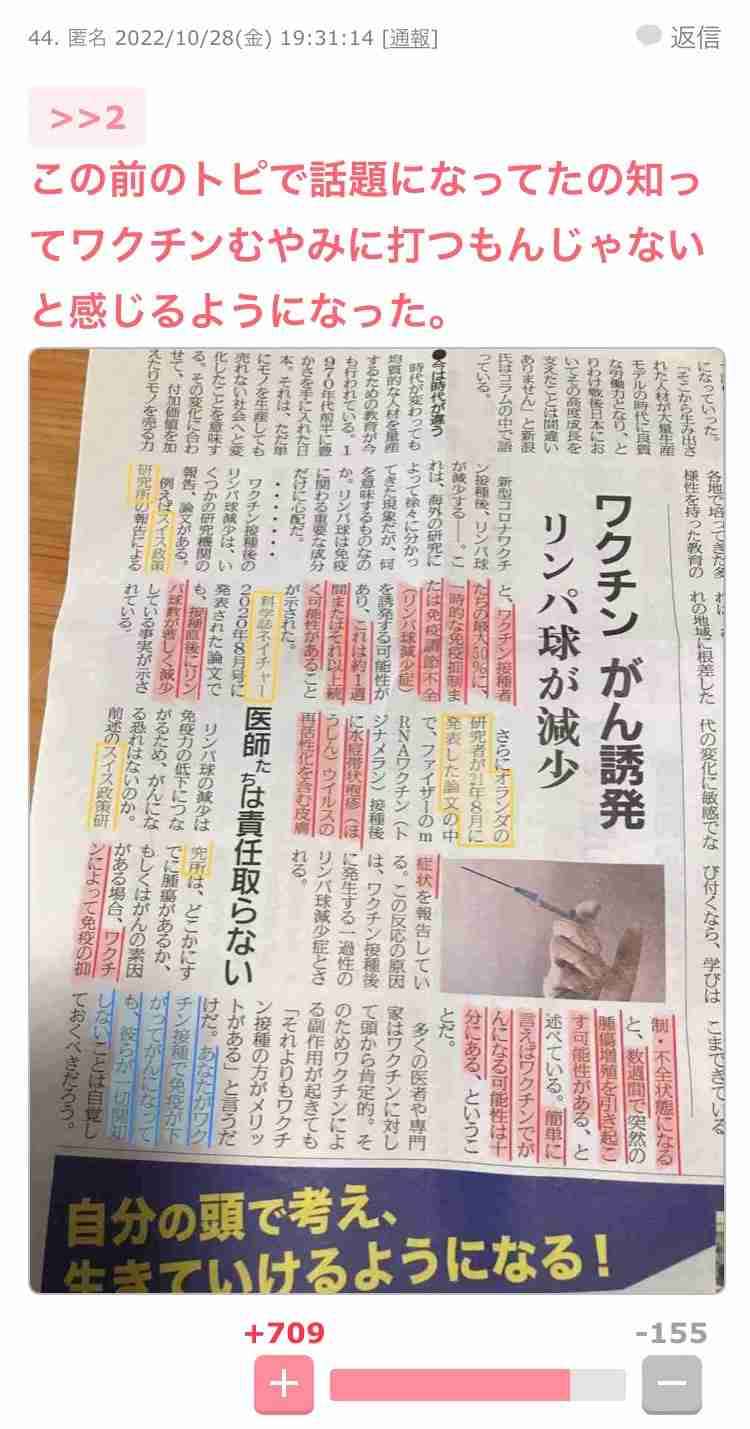 44. 匿名 2022/10/28(金) 19:31:14 [通報]
返信
>>2
この前のトピで話題になってたの知っ
てワクチンむやみに打つもんじゃない
と感じるようになった。
になっていった。
「そこから生み出さ
れた人材が大量生産
モデルの時代に良質
な労働力となり、と
りわけ戦後日本にお
いてその高度成長を
支えたことは間違い
ありません」と新浪
氏はコラムの中で語
っている。
●今は時代が違う
時代が変わっても
均質的な人材を量産
するための教育が今
も行われている。1
970年代前半に豊
かさを手に入れた日
本。それは、ただ単
にモノを生産しても
売れない社会へと変
化したことを意味す
る。その変化に合わ
せて、付加価値を加
えたりモノを売る力
各地で培ってきた多
様性を持った教育の
れの地域に根差した
代の変化に敏感でな
び付くなら、学びは
こまできている
ワクチン がん誘発
リンパ球が減少
新型コロナワクチ
ン接種後、リンパ球
が減少する―。こ
れは、海外の研究に
よって徐々に分かっ
てきた現象だが、何
を意味するものなの
か。リンパ球は免疫
に関わる重要な成分
だけに心配だ。
・・・・・・・
ワクチン接種後の
リンパ球減少は、い
くつかの研究機関の
報告、論文がある。
例えばスイス政策
研究所の報告による
と、ワクチン接種者
たちの最大50%に、
一時的な免疫抑制ま
たは免疫調節不全
(リンパ球減少症)
を誘発する可能性が
あり、これは約1週
間またはそれ以上続
く可能性があること
が示された。
科学誌ネイチャー
2020年8月号に
発表された論文で
も、接種直後にリン
パ球数が著しく減少
している事実が示さ
れている。
さらにオランダの
研究者が21年8月に
発表した論文の中
で、ファイザーのm
RNAワクチン(ト
ジナメラン)接種後
に水痘帯状疱疹(ほ
うしん)ウイルスの
再活性化を含む皮膚
症状を報告してい
る。この反応の原因
は、ワクチン接種後
に発生する一過性の
リンパ球減少症とさ
れる。
医師たちは責任取らない
リンパ球の減少は
免疫力の低下につな
がるため、がんにな
る恐れはないのか。
前述のスイス政策研
究所は、どこかにす
でに腫瘍があるか、
もしくはがんの素因
がある場合、ワクチ
ンによって免疫の抑
制・不全状態になる
と、数週間で突然の
腫瘍増殖を引き起こ
す可能性がある、と
述べている。簡単に
言えばワクチンでが
んになる可能性は十
分にある、というこ
とだ。
多くの医者や専門
家はワクチンに対し
て頭から肯定的。そ
のためワクチンによ
る副作用が起きても
「それよりもワクチ
ン接種の方がメリッ
トがある」と言うだ
けだ。あなたがワク
チン接種で免疫が下
がってがんになって
も、彼らが一切関知
しないことは自覚し
ておくべきだろう。
自分の頭で考え、
生きていけるようになる!
+709
-155